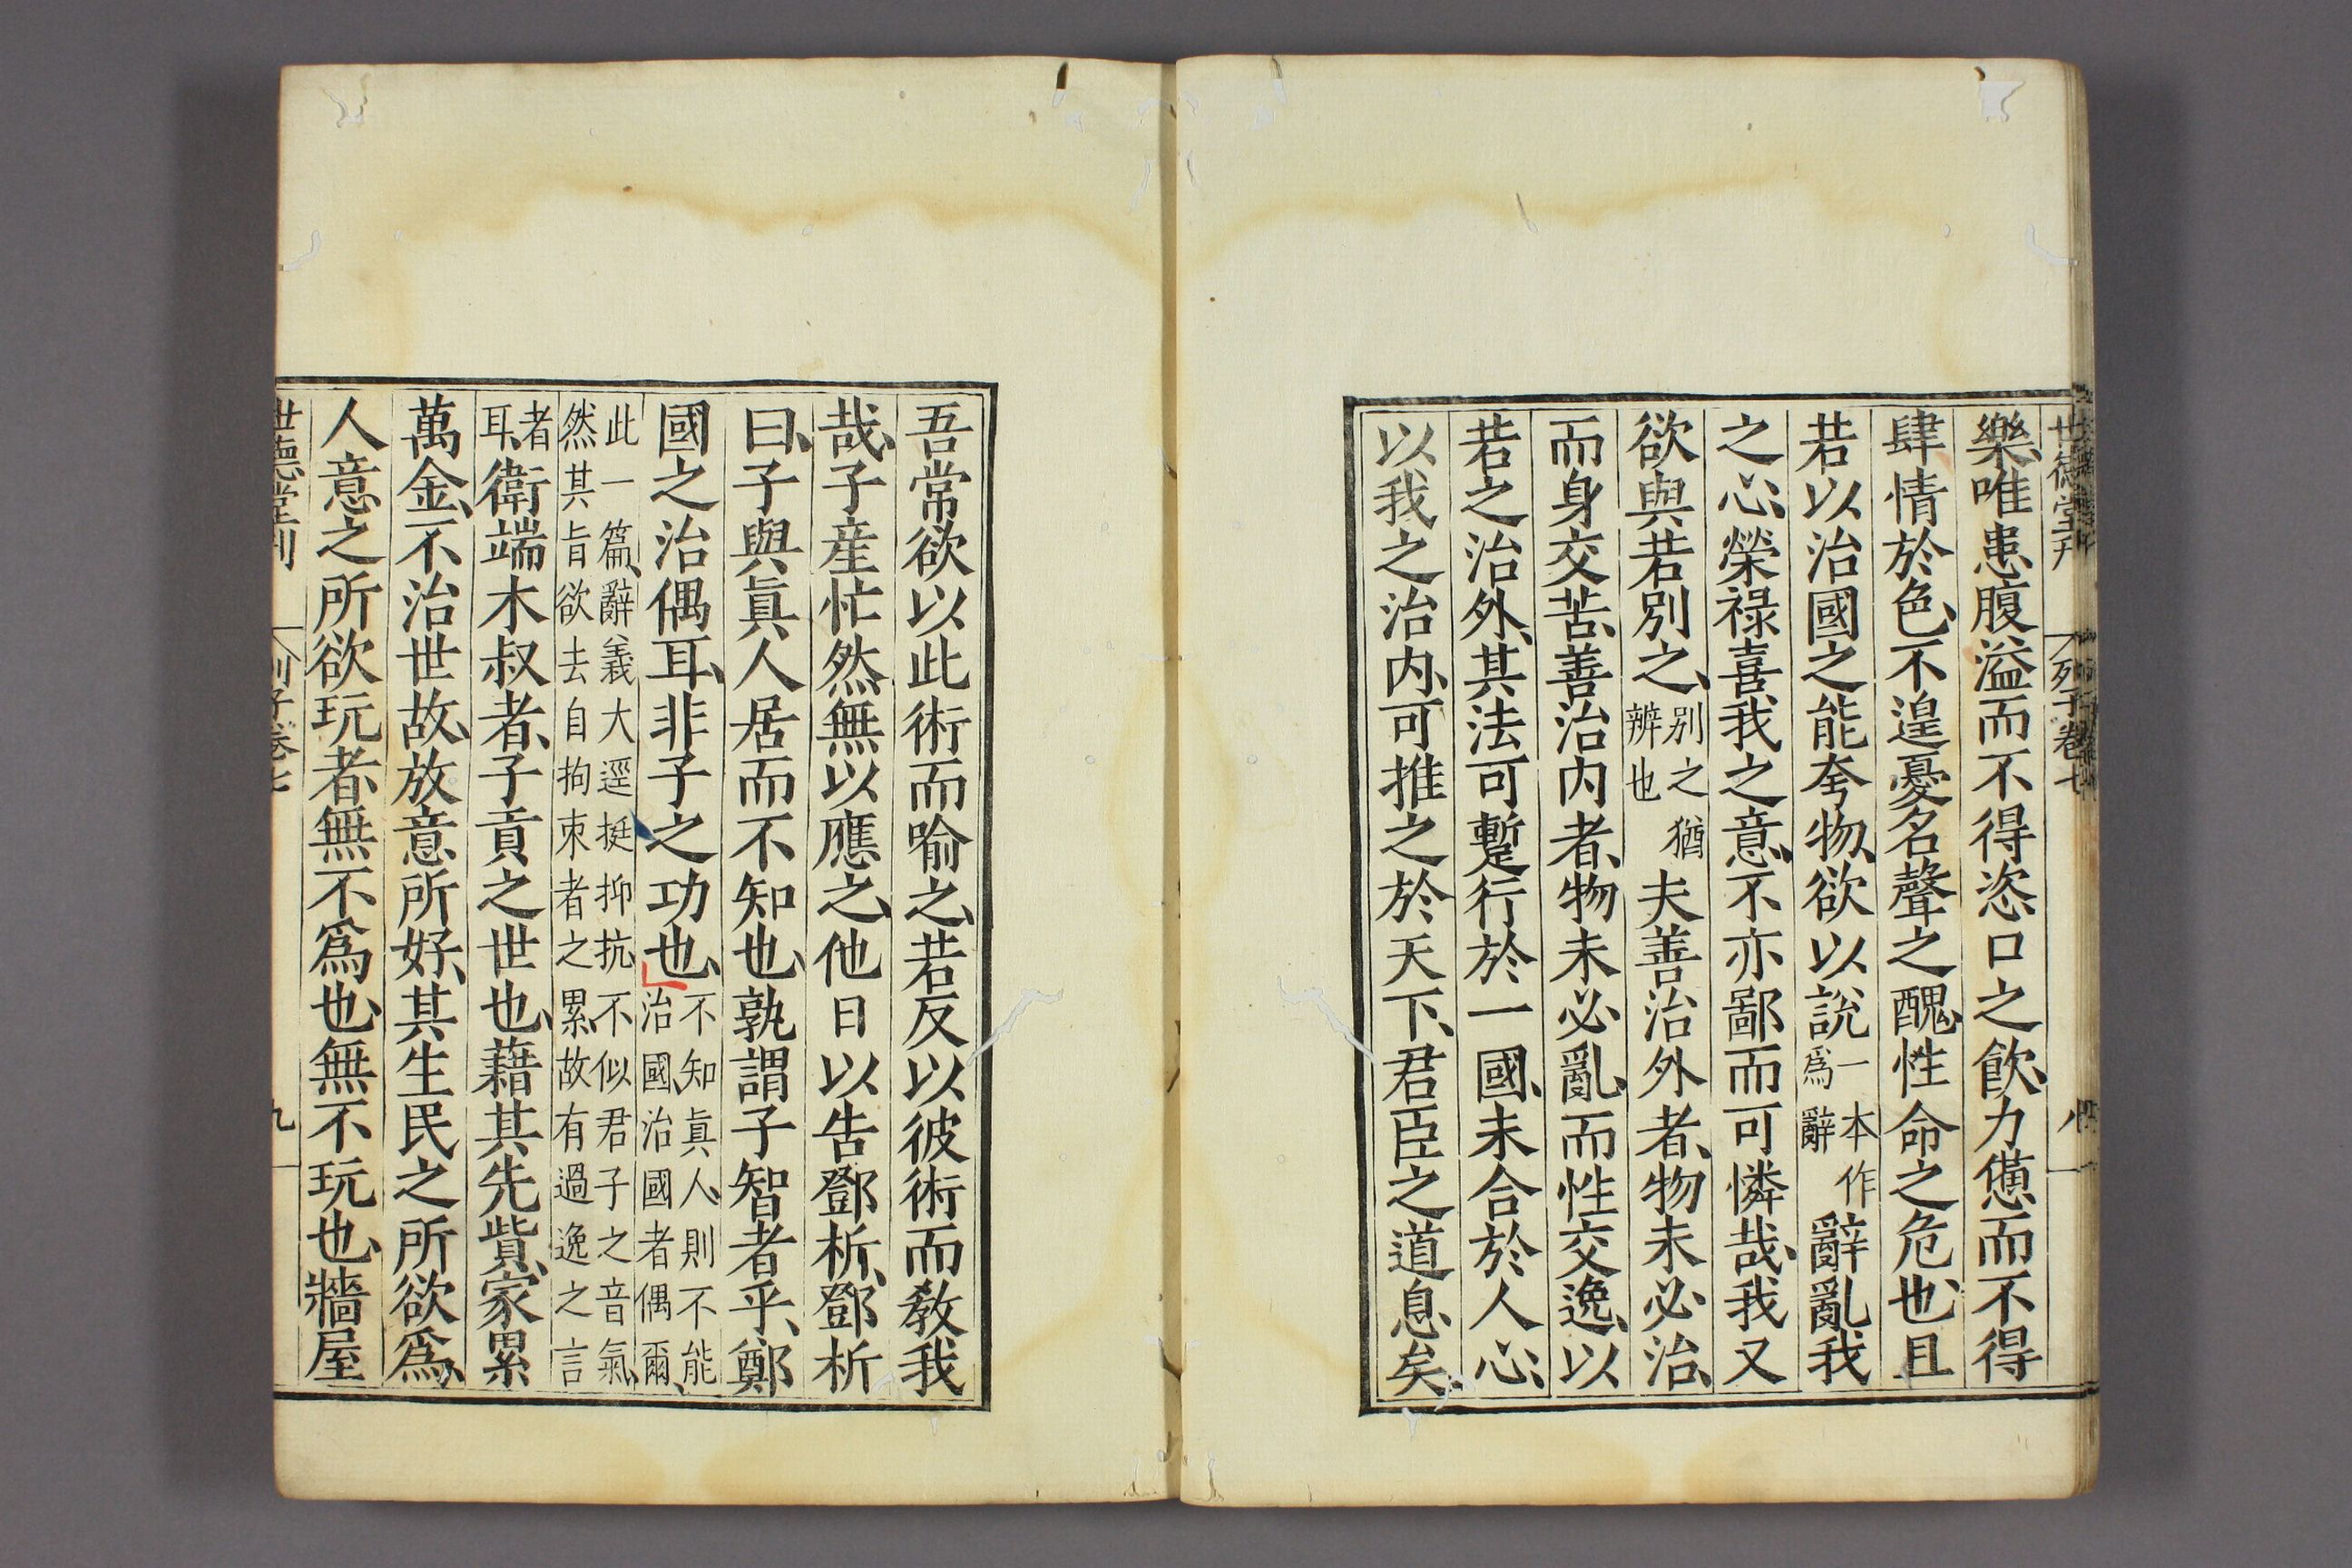 世德堂刊 列子卷七 八
樂、唯患腹溢而不得恣口之飲、力憊而不得
肆情於色、不遑憂名聲之醜、性命之危也、且
若以治國之能夸物、欲以說一本作爲辭辭亂我
之心、榮祿喜我之意、不亦鄙而可憐哉、我又
欲與若別之、別之猶辨也夫善治外者、物未必治、
而身交苦、善治内者、物未必亂、而性交逸、以
若之治外、其法可蹔行於一國、未合於人心、
以我之治内、可推之於天下、君臣之道息矣、
吾常欲以此術而喻之、若反以彼術而敎我
哉、子産忙然無以應之、他日以告鄧析、鄧析
曰、子與眞人居而不知也、孰謂子智者乎、鄭
國之治偶耳、非子之功也、不知眞人、則不能治國、治國者偶爾、
此一篇、辭義大逕挺抑抗不似君子之音氣、然其旨欲去自拘束者之累、故有過逸之言
者耳、衛端木叔者、子貢之世也、藉其先貲、家累
萬金、不治世故、放意所好、其生民之所欲爲、
人意之所欲玩者、無不爲也、無不玩也、牆屋
世德堂刊 列子卷七 九